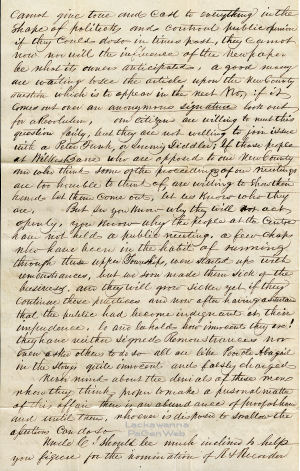 cannot give tone and cast to everything in the
shape of politicks, and control public opinion
if they could do so in times past, they cannot
now nor will the influence of the new paper
be what its owners anticipated. a good many
are waiting to see the article upon the New County
question which is to appear in the next No, if it
comes out over an anonymous signature look out
for a Revolution, our citizens are willing to meet this
question fairly, but they are not willing to join issue
with a Peter Funk, or Jeremy Diddler, If those people
at Wilkesbarre who are opposed to our New County
men who think some of the proceedings of our meetings
are too horrible to think of, are willing to shorten
them let them come out, let us know who they
are. But sir you know why they will not act
openly, you know why the people at the Centre
have not held a public meeting. a few chaps
who have been in the habit of running
through these upper Township, were started up with
remonstrances, but we soon made them sick of the
business, and they will grow sicker yet if they
continue these practices and now after having ascertained
that the public had become indignant at their
impudence. lo and behold how innocent they are!
they have neither signed Remonstrances nor
even asked others to do so all are like Poor Abagail
in the story quite innocent and falsely charged
Never mind about the denials of these men
when they think proper to make a personal matter
of this affair there is an abundance of proof at hand
and until then, whoever is disposed to swallow the
assertion Can do so.
Uncle C! Should be much inclined to help
you figure for the nomination of R & Recorder
Lackawanna
PaGenWeb